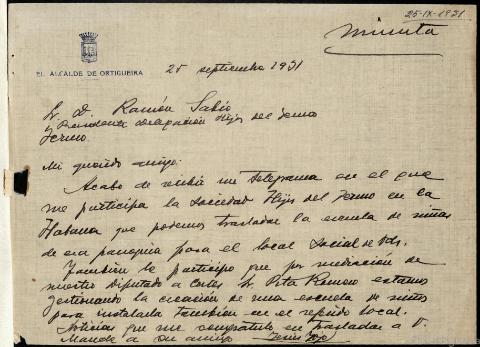 25-IX-1931
Minuta
EL ALCALDE DE ORTIGUEIRA
25 septiembre 1931
Sr. D. Ramón Sabio
Presidente delegación Hijos del Yermo
Yermo.
Mi querido amigo:
Acabo de recibir un telegrama en el que
me participa la Sociedad Hijos del Yermo en la
Habana que podemos trasladar la escuela de niñas
de esa parroquia para el local social de Vds.
También le participo que por mediación de
nuestro Diputado a Cortes Sr. Pita Romero estamos
gestionando la creación de una escuela de niños
para instalarla también en el referido local.
Noticias que me complazco en trasladar a V.
Mande a su amigo